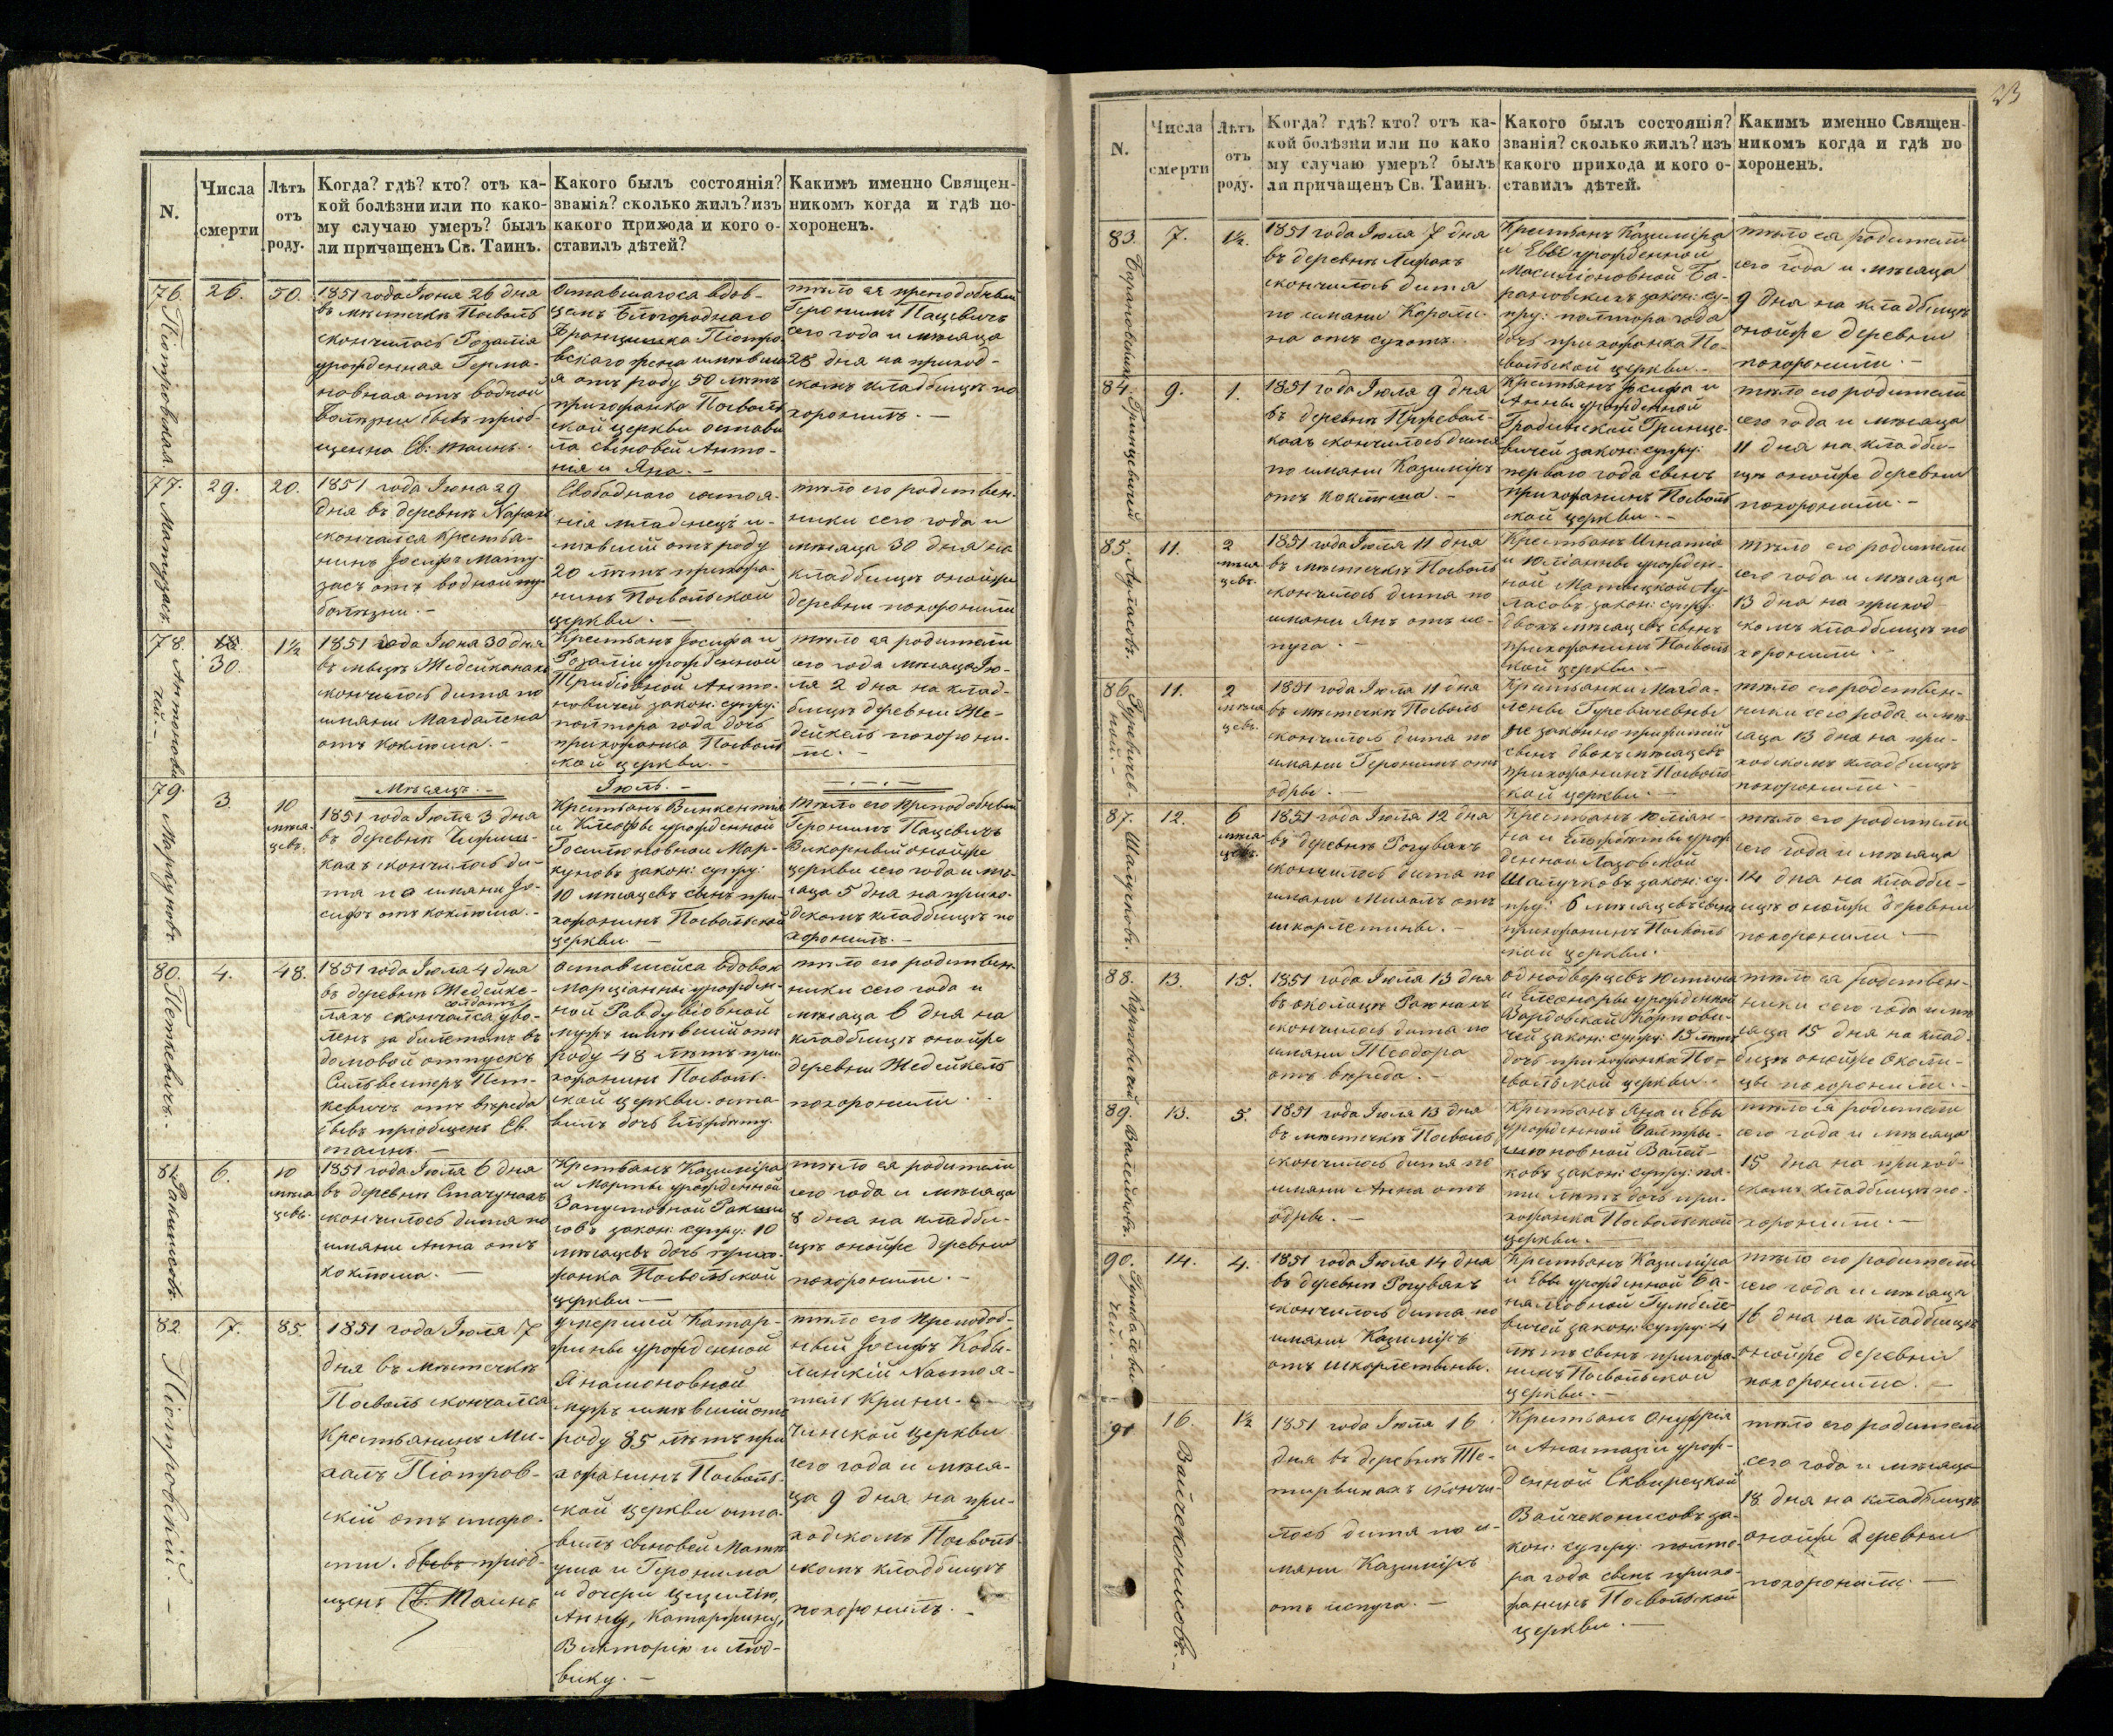 N.
Числа
смерти
Лѣтъ
отъ
роду.
Когда? гдѣ? кто? отъ ка-
кой болѣзни или по како-
му случаю умеръ? былъ
ли причащенъ Св. Таинъ.
Какого былъ состоянія?
званія? сколько жилъ? изъ
какого прихода и кого о-
ставилъ дѣтей?
Какимъ именно Священ-
никомъ когда и гдѣ по-
хороненъ.
76.
Піотровская
26.
50.
1851 года Іюня 26 дня
въ мѣстечкѣ Посволѣ
скончилось Розалія
урожденная Герма-
новная отъ водной
болѣзни бывъ пріоб-
щенна Св: таинъ.
Оставшагося вдов-
цемъ Благороднаго
Францишка Піотро-
вскаго жена имѣвша
я отъ роду 50 лѣтъ
прихожанка Посволь
ской церкви остави
ла сыновей Анто-
нія и Яна. –
тѣло ея преподобный
Геронимъ Пацевичъ
сего года и мѣсяца
28 дня на приход-
скомъ кладбищѣ по
хоронилъ. –
77.
Матузасъ
29.
20.
1851 года Іюня 29
дня въ деревнѣ
скончался крестья-
нинъ Іосифъ Мату-
засъ отъ водной
болѣзни. –
Свободнаго состоя-
нія младенецъ и-
мѣвшій отъ роду
20 лѣтъ прихожа-
нинъ Посвольской
церкви. –
тѣло его родствен-
ники сего года и
мѣсяца 30 дня на
кладбищѣ онойже
деревни похоронили
78.
Антонови
чей. –
30.
1½
1851 года Іюня 30 дня
скончилось дитя по
имяни Магдалена
отъ коклюша. –
Крестьянъ Іосифа и
Розаліи урожденной
Анто-
новичей закон: супру:
полтора года дочь
прихожанка Посволь
ской церкви. –
тѣло ея родители
сего года мѣсяца Ію-
ля 2 дня на клад-
бищѣ деревни Же-
дейкель похорони-
ли. –
Мѣсяцъ. –
Іюль. –
79.
Маркуновъ
3.
10
мѣся-
цевъ.
1851 года Іюля 3 дня
въ деревнѣ
кахъ скончилось ди-
тя по имяни Іо-
сифъ отъ коклюша. –
Крестьянъ Викентія
и Клеофы урожденной
Мар-
куновъ закон: супру:
10 мѣсяцевъ сынъ при-
хожанинъ Посвольской
церкви. –
Тѣло его преподобный
Геронимъ Пацевичъ
Викорный онойже
церкви сего года и мѣ-
сяца 5 дня на прихо-
дскомъ кладбищѣ по
хоронилъ. –
80.
Петкевичъ. –
4.
48.
1851 года Іюля 4 дня
въ деревнѣ Жедейке-
солдатъ
ляхъ скончался уво-
ленъ за билетомъ въ
домовой отпускъ
Сильвестеръ Пет-
кевичъ отъ вереда
бывъ пріобщенъ Св.
таинъ. –
Оставшейся вдовою
Марціанны урожден-
ной
мужъ имѣвшій отъ
роду 48 лѣтъ при
хожанинъ Посволь-
ской церкви оста-
вилъ дочь Ельжбету.
тѣло его родствен-
ники сего года и
мѣсяца 6 дня на
кладбищѣ онойже
деревни Жедейкель
похоронили.
81.
6.
10
мѣся
цевъ.
1851 года Іюля 6 дня
въ деревнѣ Стачунахъ
скончилось дитя по
имяни Анна отъ
коклюша. –
Крестьянъ Казимира
и Марты урожденной
закон: супру: 10
мѣсяцевъ дочь прихо-
жанка Посвольской
церкви –
тѣло ея родители
сего года и мѣсяца
8 дня на кладби-
щѣ онойже деревни
похоронили. –
82.
Піотровскій. –
7.
85.
1851 года Іюля 7
дня въ мѣстечкѣ
Посволѣ скончался
крестьянинъ Ми-
халъ Піотров-
скій отъ старо-
сти. бывъ пріоб-
щенъ Св. Таинъ
умершей Катар-
жины урожденной
мужъ имѣвшій отъ
роду 85 лѣтъ при
хожанинъ Посволь-
ской церкви оста-
вилъ сыновей Мате
уша и Геронима
и дочери Цецилію,
Анну, Катаржину,
Викторію и Люд-
вику. –
тѣло его преподоб-
ный Іосифъ Кобы-
линскій Настоя-
тель Крини-
чинской церкви
сего года и мѣся-
ца 9 дня на при-
ходскомъ Посволь-
скомъ кладбищѣ
похоронилъ. –
23
N.
Числа
смерти
Лѣтъ
отъ
роду.
Когда? гдѣ? кто? отъ ка-
кой болѣзни или по како
му случаю умеръ? былъ
ли причащенъ Св. Таинъ.
Какого былъ состоянія?
званія? сколько жилъ? изъ
какого прихода и кого о-
ставилъ дѣтей.
Какимъ именно Священ-
никомъ когда и гдѣ по
хороненъ.
83.
7.
1½.
1851 года Іюля 7 дня
въ деревнѣ
скончилось дитя
по имяни Кароли-
на отъ сухотъ.
Крестьянъ Казиміра
и Евы урожденной
Ба-
рановскихъ закон: су-
пру: полтора года
дочь прихожанка По-
свольской церкви. –
тѣло ея родители
сего года и мѣсяца
9 дня на кладбищѣ
онойже деревни
похоронили. –
84.
Гринцевичей
9.
1.
1851 года Іюля 9 дня
въ деревнѣ
кахъ скончилось дитя
по имяни Казиміръ
отъ коклюша. –
Крестьянъ Іосифа и
Анны урожденной
Гринце-
вичей закон: супру:
перваго года сынъ
прихожанинъ Посволь
ской церкви. –
тѣло его родители
сего года и мѣсяца
11 дня на кладби-
щѣ онойже деревни
похоронили. –
85.
11.
2
мѣся
цевъ.
1851 года Іюля 11 дня
въ мѣстечкѣ Посволѣ
скончилось дитя по
имяни Янъ отъ ис-
пуга. –
Крестьянъ Игнатія
и Юліанны урожден-
ной
закон: супру:
двохъ мѣсяцевъ сынъ
прихожанинъ Посволь
ской церкви. –
тѣло его родители
сего года и мѣсяца
13 дня на приход-
скомъ кладбищѣ по
хоронили. –
86.
Гуревичев-
ной. –
11.
2
мѣся
цевъ.
1851 года Іюля 11 дня
въ мѣстечкѣ Посволѣ
скончилось дитя по
имяни Геронимъ отъ
одры. –
Крестьянки Магда-
лены Гуревичевны
не законно прижитый
сынъ двохъ мѣсяцевъ
прихожанинъ Посволь
ской церкви. –
тѣло его родствен-
ники сего года и мѣ-
сяца 13 дня на при-
ходскомъ кладбищѣ
похоронили. –
87.
Шалучковъ.
12.
6
мѣся
цевъ.
1851 года Іюля 12 дня
въ деревнѣ Рогувкахъ
скончилось дитя по
имяни Михалъ отъ
шкорлетины. –
Крестьянъ Юліян-
на и Ельжбеты урож
денной Лазовской
Шалучковъ закон: су-
пру: 6 мѣсяцевъ сынъ
прихожанинъ Посволь
ской церкви.
тѣло его родители
сего года и мѣсяца
14 дня на кладби-
щѣ онойже деревни
похоронили –
88.
Карповичей
13.
15.
1851 года Іюля 13 дня
въ околицѣ
скончилось дитя по
имяни Теодора
отъ вереда. –
однодворцевъ Юстина
и Елеонары урожденной
Карпови-
чей закон: супру: 15 лѣтъ
дочь прихожанка По-
свольской церкви. –
тѣло ея родствен-
ники сего года и мѣ
сяца 15 дня на клад-
бищѣ онойже Околи-
цы похоронили. –
89.
Валейковъ.
13.
5.
1851 года Іюля 13 дня
въ мѣстечкѣ Посволѣ
скончилось дитя по
имяни Анна отъ
одры. –
Крестьянъ Яна и Евы
урожденной
Валей-
ковъ закон: супру: пя-
ти лѣтъ дочь при-
хожанка Посвольской
церкви. –
тѣло ея родители
сего года и мѣсяца
15 дня на приход-
скомъ кладбищѣ по-
хоронили. –
90.
14.
4.
1851 года Іюля 14 дня
въ деревнѣ Рогувкахъ
скончилось дитя по
имяни Казиміръ
отъ шкорлетыны.
Крестьянъ Казиміра
и Евы урожденной
закон: супру: 4
лѣтъ сынъ прихожа-
нинъ Посвольской
церкви. –
тѣло его родители
сего года и мѣсяца
16 дня на кладбищѣ
онойже деревни
похоронили. –
91
Вайчеконисовъ. –
16.
1½
1851 года Іюля 16
дня въ деревнѣ Те-
тирвинахъ скончи-
лось дитя по и-
мяни Казиміръ
отъ испуга. –
Крестьянъ Онуфрія
и Анастазіи урож-
денной Сквирецкой
Вайчеконисовъ за-
кон: супру: полто-
ра года сынъ прихо-
жанинъ Посвольской
церкви. –
тѣло его родители
сего года и мѣсяца
18 дня на кладбищѣ
онойже деревни
похоронили. –